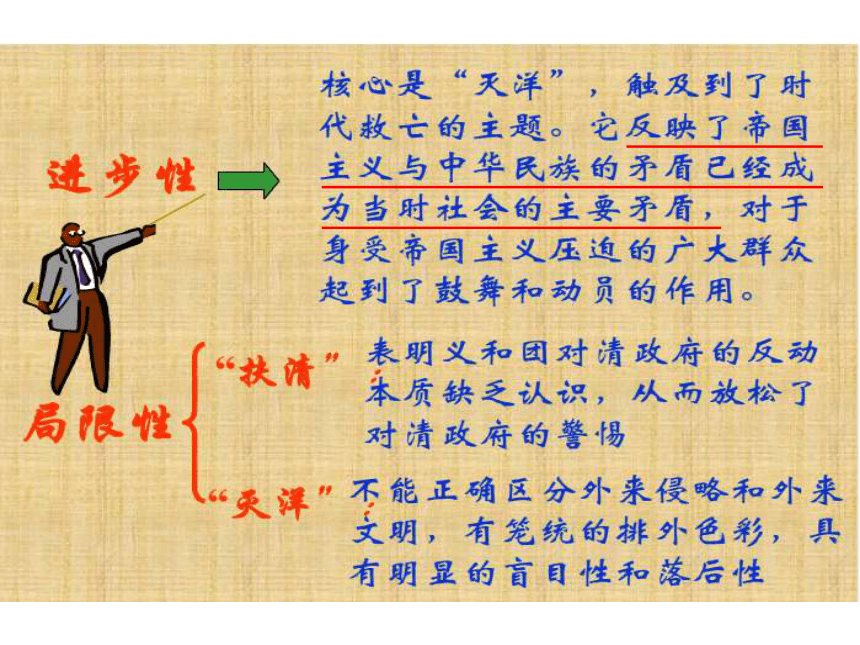 进步性
核心是“灭洋”，触及到了时
代救亡的主题。它反映了帝国
主义与中华民族的矛盾已经成
为当时社会的主要矛盾，对于
身受帝国主义压迫的广大群众
起到了鼓舞和动员的作用。
局限性
“扶清”：
表明义和团对清政府的反动
本质缺乏认识，从而放松了
对清政府的警惕
“灭洋”：
不能正确区分外来侵略和外来
文明，有笼统的排外色彩，具
有明显的盲目性和落后性